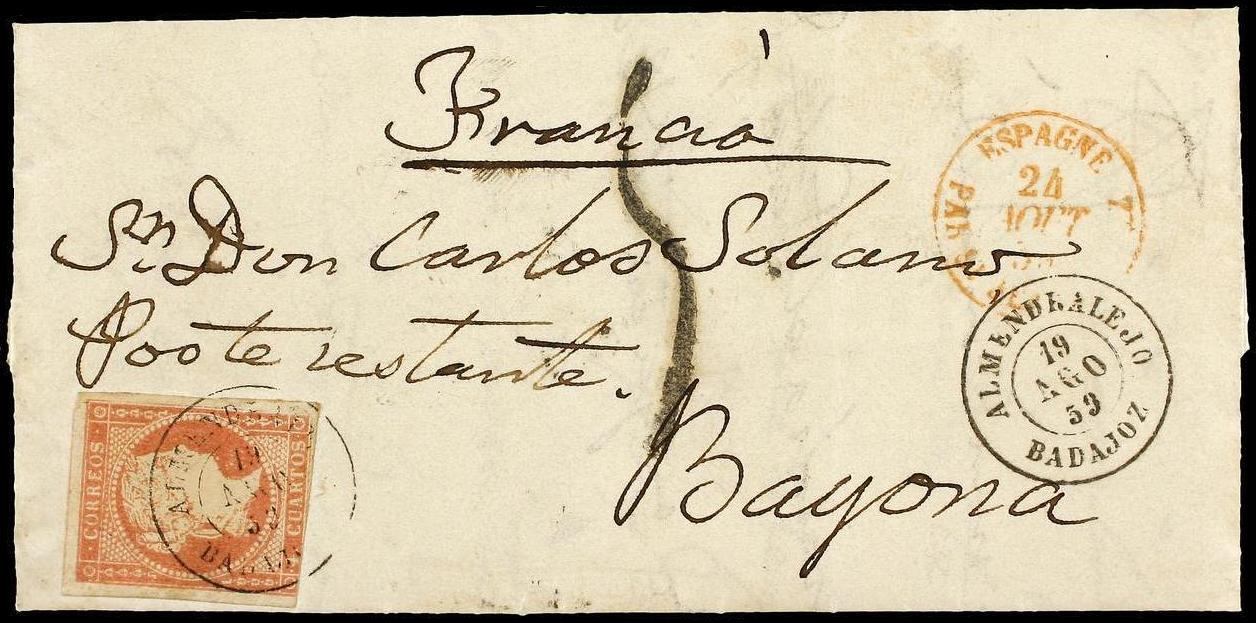 Francia
Sr. Don Carlos Solano,
Poste restante.
Bayona
ESPAGNE
24
AOUT
ALMENDRALEJO
19
AGO
59
BADAJOZ
CORREOS
CUARTOS
19